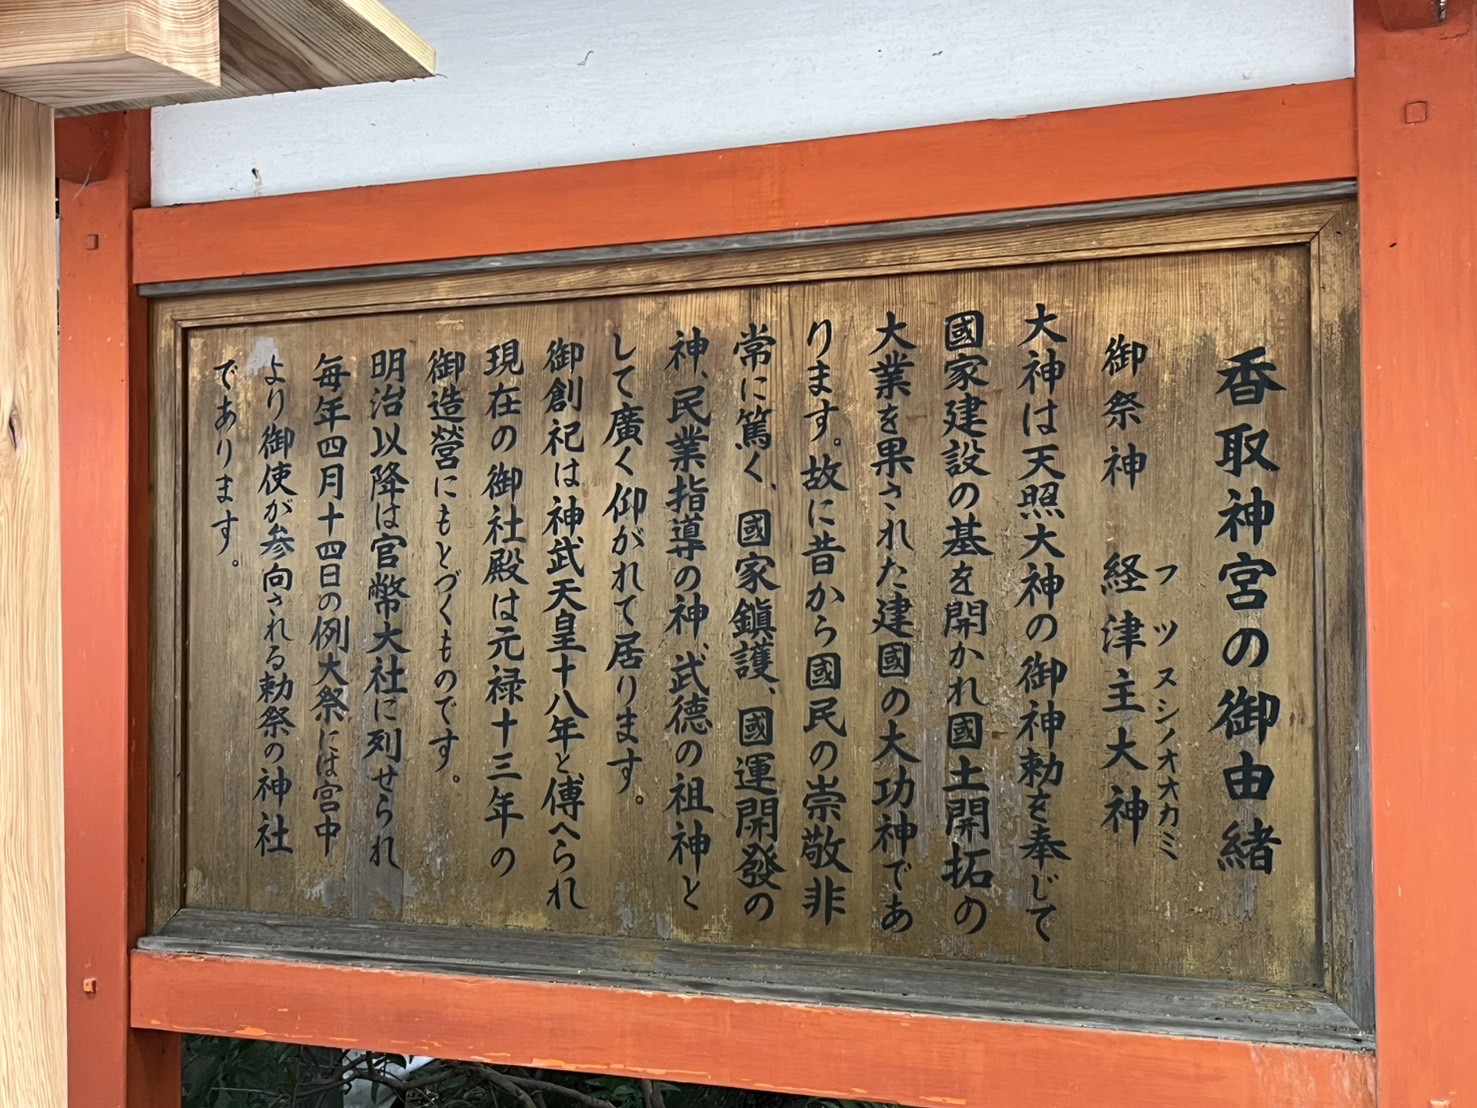 香取神宮の御由緒
御祭神 経津主大神
フツヌシノオオカミ
大神は天照大神の御神勅を奉じて
國家建設の基を開かれ國土開拓の
大業を果された建國の大功神であ
ります。故に昔から國民の崇敬非
常に篤く、國家鎭護、國運開發の
神、民業指導の神、武德の祖神と
して廣く仰がれて居ります。
御創祀は神武天皇十八年と傳へられ
現在の御社殿は元禄十三年の
御造營にもとづくものです。
明治以降は官幣大社に列せられ
毎年四月十四日の例大祭には宮中
より御使が参向される勅祭の神社
であります。